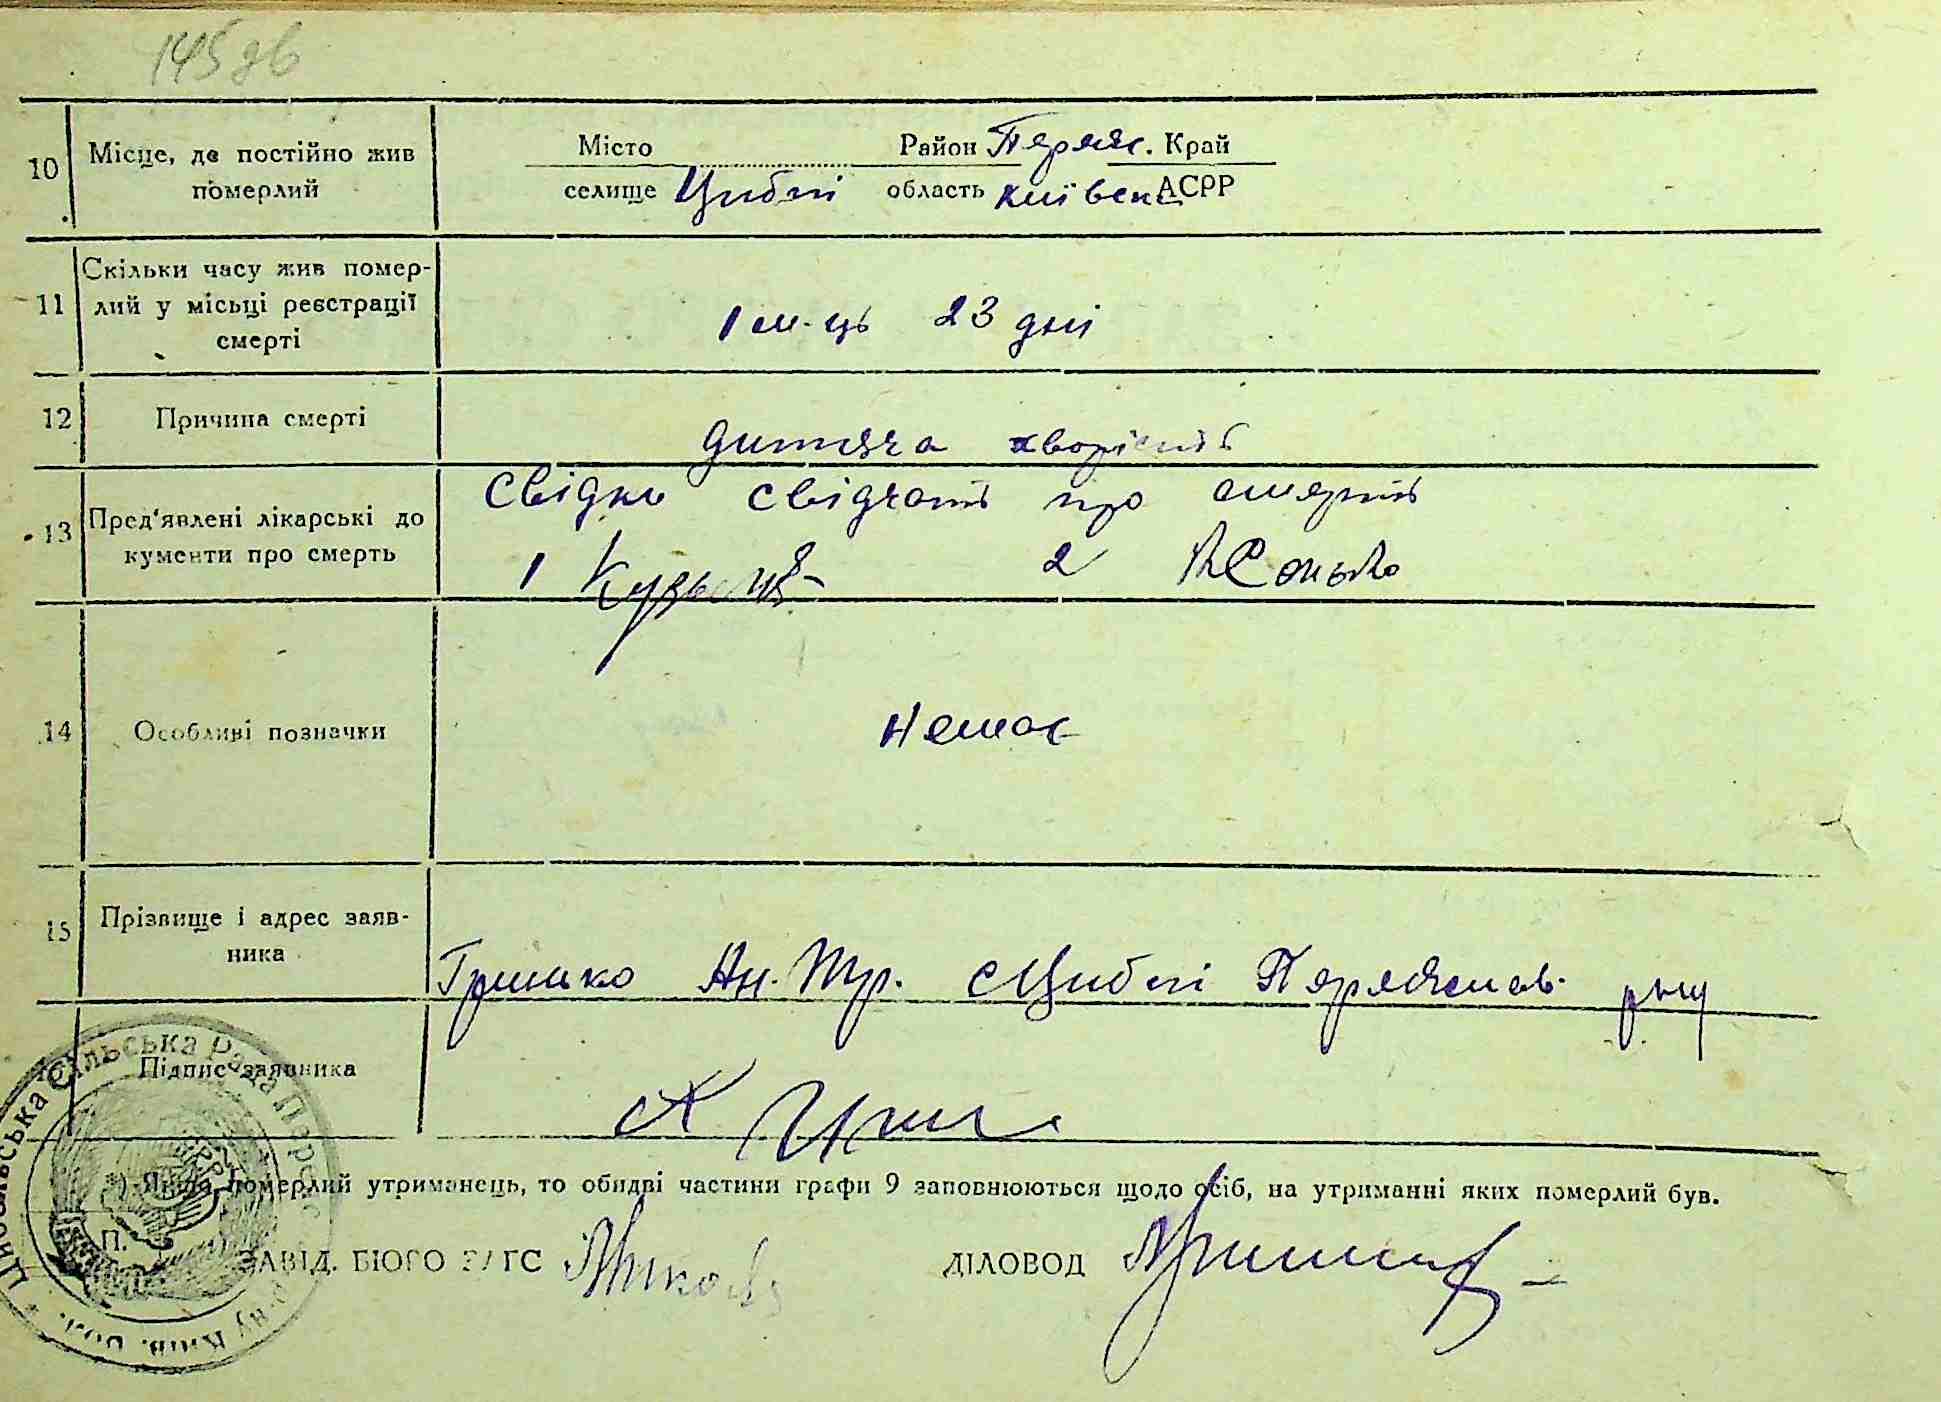 145 зв
10 Місце, де постійно жив померлий
Місто Район Переяс. Край
селище Циблі область Київськ АСРР
11 Скільки часу жив помер-
лий у місьці реєстрації
смерті
1 м-ць 23 дні
12 Причина смерті
дитяча хворість
13 Пред'явлені лікарські до
кументи про смерть
Свідки свідчать про смерть
1 2
14 Особливі позначки
немає
15 Прізвище і адрес заяв-
ника
Гринько Ан. Тр. с Циблі Переяслав. р-ну
Підпис заявника
*) Якщо померлий утриманець, то обидві частини графи 9 заповнюються щодо осіб, на утриманні яких померлий був.
П.
ЗАВІД. БЮРО ЗАГС
ДІЛОВОД
Циблівська Сільська Рада Переяс р-ну Київ. обл.